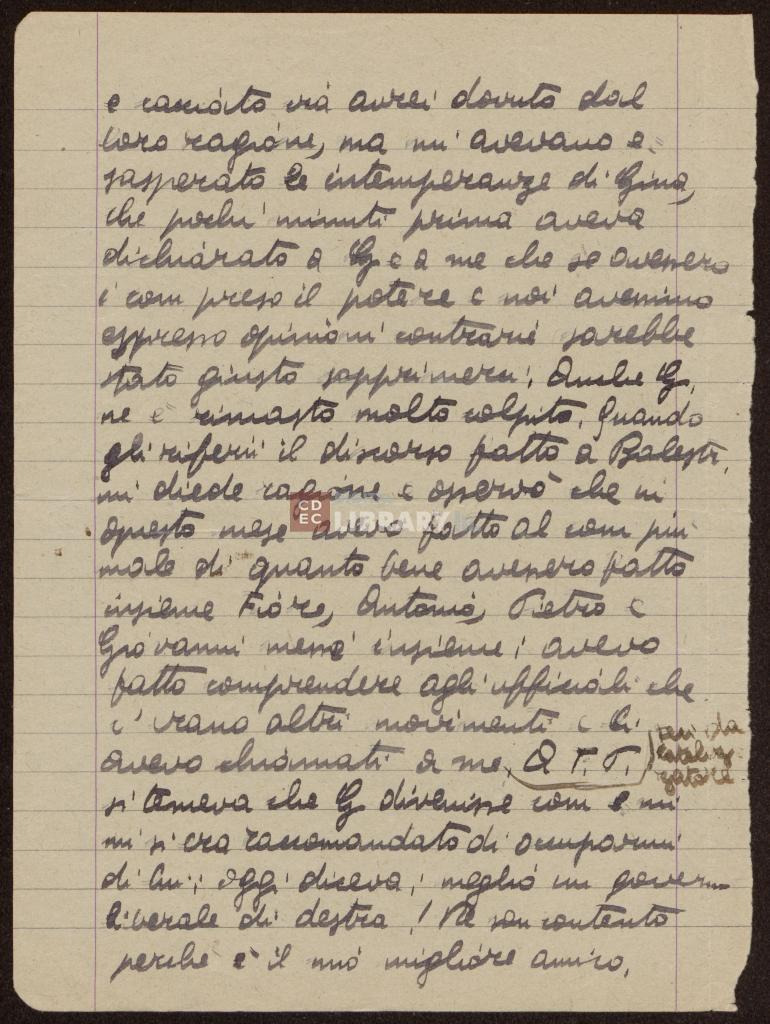 e cacciato via avrei dovuto dar
loro ragione, ma mi avevano e-
sasperato le intemperanze di Gina,
che pochi minuti prima aveva
dichiarato a G e a me che se avessero
i com preso il potere e noi avessimo
espresso opinioni contrarie sarebbe
stato giusto sopprimerci; Anche G.
ne è rimasto molto colpito. Quando
gli riferii il discorso fatto a Balestr.
mi diede ragione e osservò che in
questo mese avevo fatto al com più
male di quanto bene avessero fatto
insieme Fiore, Antonio, Pietro e
Giovanni messi insieme; avevo
fatto comprendere agli ufficiali che
c'erano altri movimenti e li
avevo chiamati a me. A T. T.
si temeva che G divenisse com e mi
mi si era raccomandato di occuparmi
di lui; oggi diceva; meglio un governo
liberale di destra! Ne son contento
perché è il mio migliore amico.
CDEC
LIBRARY